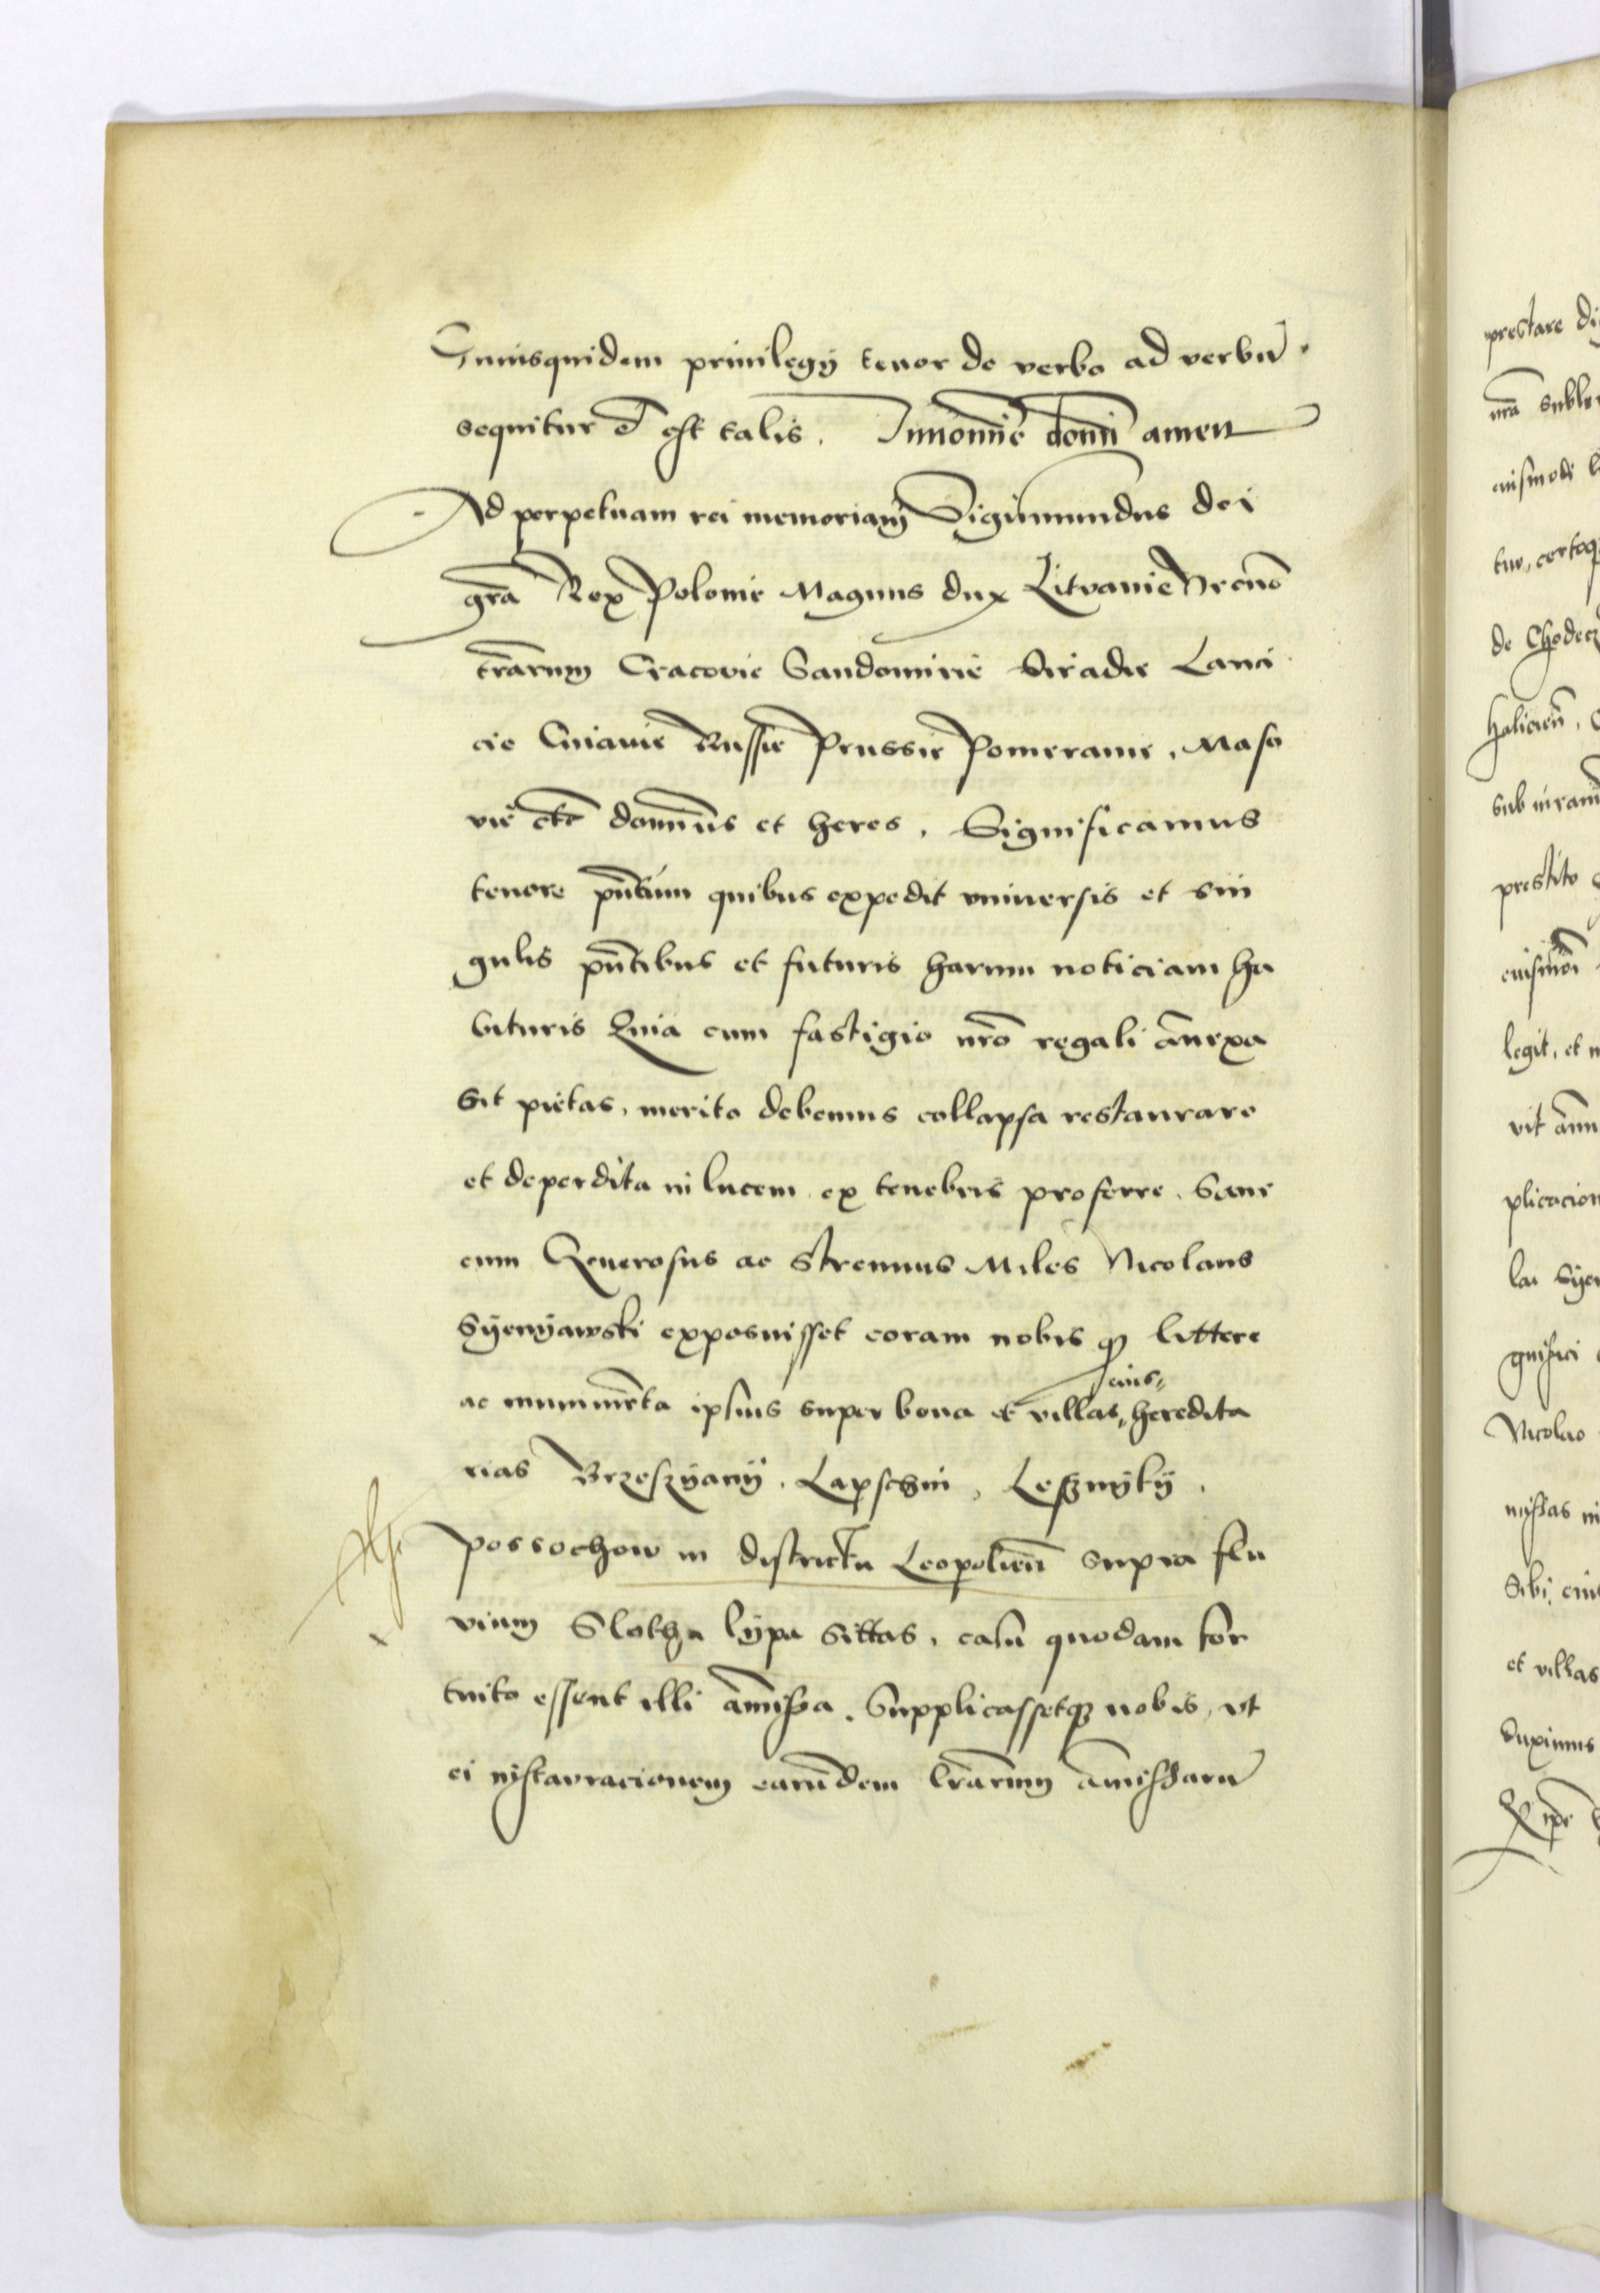 Cuiusquidem priuilegÿ tenor de verbo ad verbū.
sequitur et est talis. Innomīe domī amen
Ad perpetuam rei memoriam Sigismundus dei
grā Rex Polonie Magnus dux Litvanie Necnō
trarum Cracovie Sandomirie Siradie Lanci
cie Cuiauie Russie Prussie Pomeranie, Maso
vie etc̄ domīnus et heres. Significamus
tenore pn̄tium quibus expedit vniuersis et sin
gulis pn̄tibus et futuris harum noticiam ha
bituris Quia cum fastigio nrō regali ānexa
sit pietas, merito debemus collapsa restaurare
et deperdita in lucem ex tenebris proferre. Sane
cum Generosus ac Strenuus Miles Nicolaus
Syenÿawski exposuisset coram nobis q littere
eius
ac munimēta ipsius super bona et villas, heredita
rias Brzeszÿanÿ, Lapschin, Lesznÿkÿ,
possochow in districtu Leopolieñ supra flu
vium Slotha lÿpa sittas, casu quodam for
tuito essent illi āmissa. Supplicassetq nobis, vt
ei instauracionem earūdem lrārum āmissarū
prestare
nrā
eiusmodi
tuo, certoq
de Chodecz
halicieñ,
sub
prestito
eiusmōi
legit, et
vit
plicacion
lai Syen
gnifici
Nicolao
missas in
sibi,
et villas
duximus